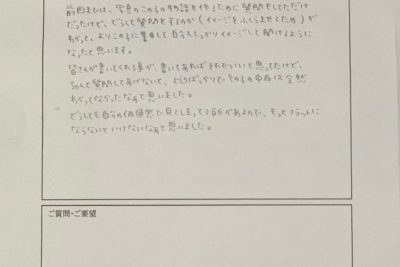 前回までは、写真のこの子の物語を作るために質問をしてただけ
だったけど、どうして質問をするのか(イメージをふくらませるため)が
わかって、よりこの子に集中して自分もしっかりイメージして聞けるように
なったと思います。
皆さんが書いてくれる事が、書いてあればそれでいいと思ってたけど、
ちゃんと質問してあげないと、とじばっかりで、その子の中身は全然
わかってなかったなぁと思いました。
どうしても自分の価値感で見てしまってる所があるので、もっとフラットに
ならないといけないなぁと思いました。
ご質問・ご要望